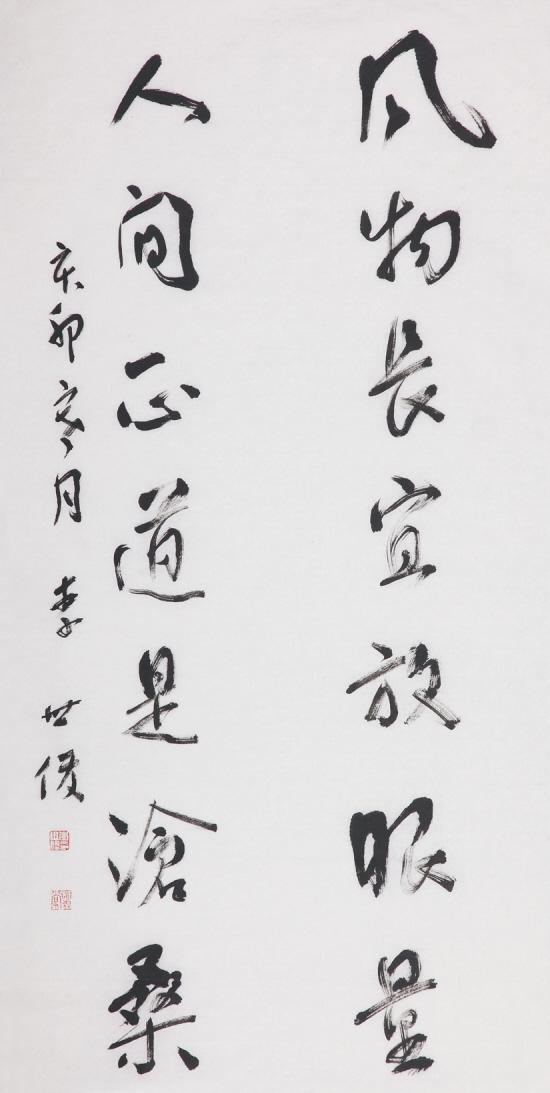 风物长宜放眼量
人间正道是沧桑
癸卯寒月 李世俊